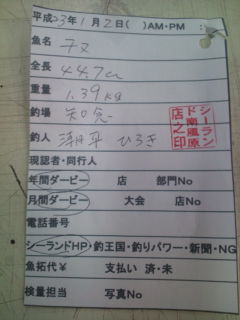 平成23年1月2日( )AM・PM :
魚名 チヌ
全長 44.7cm
重量 1.39kg
釣場 知念
釣人 ひろき
シーランド南風原店之印
現認者・同行人
年間ダービー 店 部門No
月間ダービー 大会 店No
電話番号
シーランドHP・釣王国・釣りパワー・新聞・NG
魚拓代¥ 支払い 済・未
検量担当 写真No